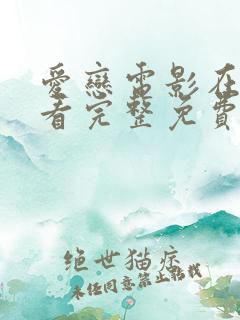 愛戀電影在
看完整免費
绝世猫痞
未经同意禁止转载